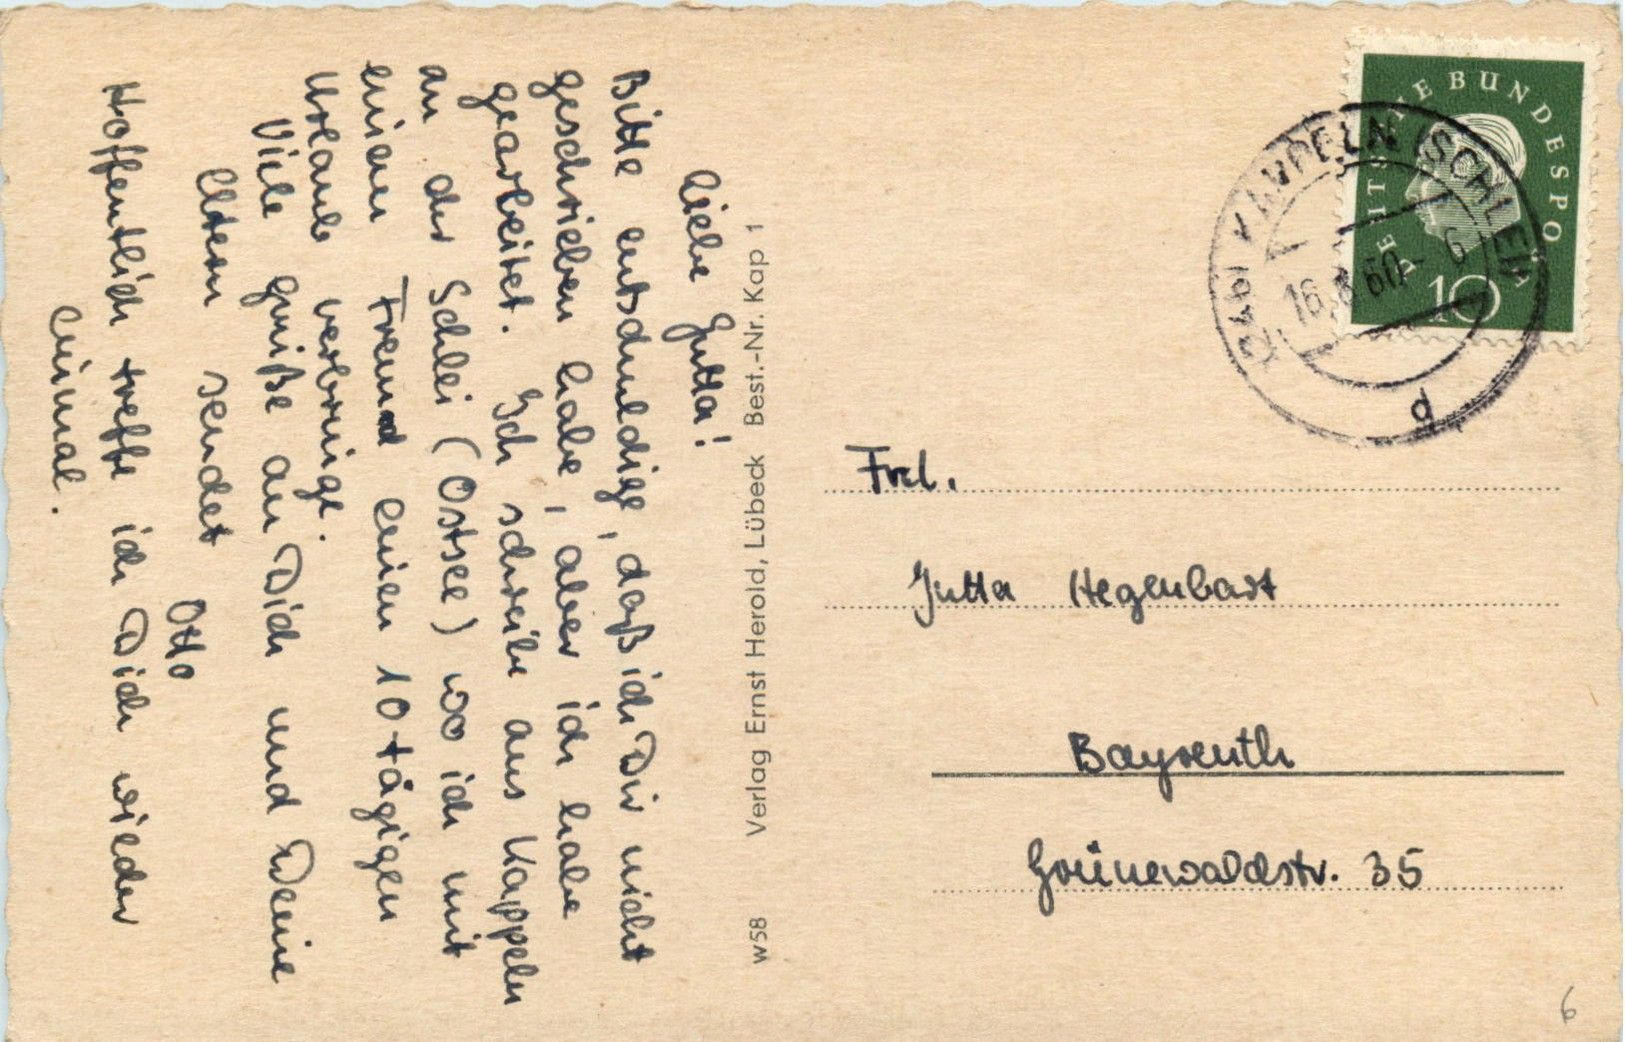 Liebe Jutta!
Bitte entschuldige, daß ich Dir nicht
geschrieben habe, aber ich habe
gearbeitet. Ich schreibe aus Kappeln
an der Schlei (Ostsee) wo ich mit
einem Freund einen 10tägigen
Urlaub verbringe.
Viele Grüße an Dich und Deine
Eltern sendet
Otto
Hoffentlich treffe ich Dich wieder
einmal.
W 58 Verlag Ernst Herold, Lübeck Best.-Nr. Kap 1
DEUTSCHE BUNDESPOST
10
KAPPELN (SCHLEI)
60-6
d
Frl.
Jutta Hegenbart
Bayreuth
Grünewaldstr. 35
6